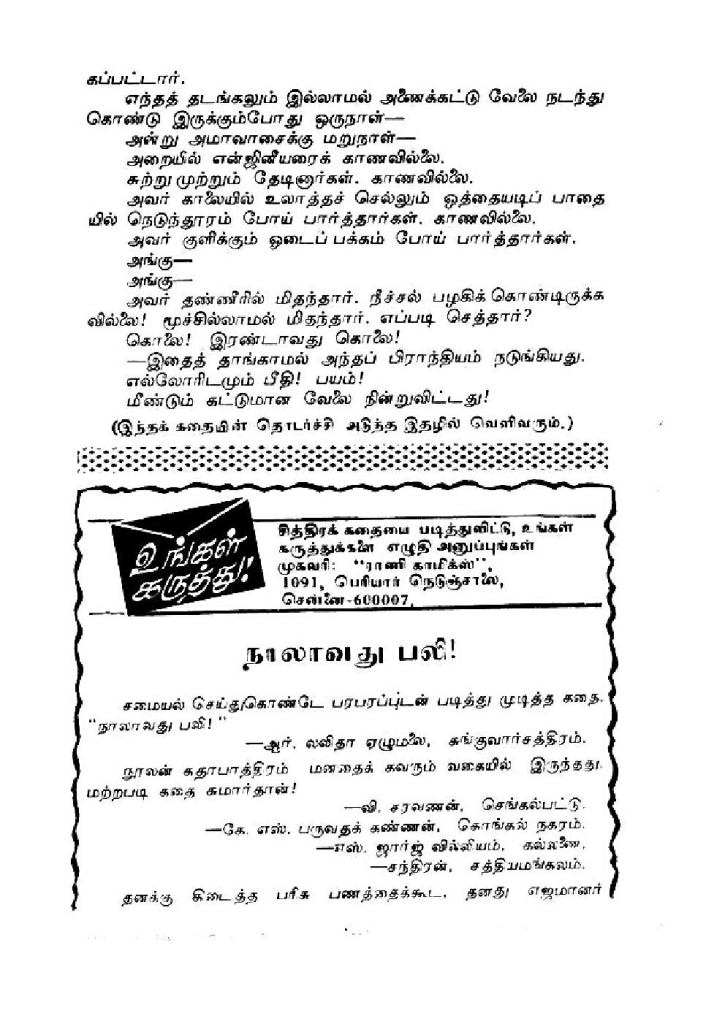 கப்பட்டார்.
எந்தத் தடங்கலும் இல்லாமல் அணைக்கட்டு வேலை நடந்து
கொண்டு இருக்கும்போது ஒருநாள்—
அன்று அமாவாசைக்கு மறுநாள்—
அறையில் என்ஜினீயரைக் காணவில்லை.
சுற்று முற்றும் தேடினார்கள். காணவில்லை.
அவர் காலையில் உலாத்தச் செல்லும் ஒத்தையடிப் பாதை
யில் நெடுந்தூரம் போய் பார்த்தார்கள். காணவில்லை.
அவர் குளிக்கும் ஓடைப் பக்கம் போய் பார்த்தார்கள்.
அங்கு—
அங்கு—
அவர் தண்ணீரில் மிதந்தார். நீச்சல் பழகிக் கொண்டிருக்க
வில்லை! மூச்சில்லாமல் மிதந்தார். எப்படி செத்தார்?
கொலை! இரண்டாவது கொலை!
—இதைத் தாங்காமல் அந்தப் பிராந்தியம் நடுங்கியது.
எல்லோரிடமும் பீதி! பயம்!
மீண்டும் கட்டுமான வேலை நின்றுவிட்டது!
(இந்தக் கதையின் தொடர்ச்சி அடுத்த இதழில் வெளிவரும்.)
உங்கள்
கருத்து!
சித்திரக் கதையை படித்துவிட்டு, உங்கள்
கருத்துக்களை எழுதி அனுப்புங்கள்
முகவரி: "ராணி காமிக்ஸ்",
1091, பெரியார் நெடுஞ்சாலை,
சென்னை-600007.
நாலாவது பலி!
சமையல் செய்துகொண்டே பரபரப்புடன் படித்து முடித்த கதை.
"நாலாவது பலி!"
—ஆர். லலிதா ஏழுமலை, சுங்குவார்சத்திரம்.
நூலன் கதாபாத்திரம் மனதைக் கவரும் வகையில் இருந்தது.
மற்றபடி கதை சுமார்தான்!
—வி. சரவணன், செங்கல்பட்டு.
—கே. எஸ். பருவதக் கண்ணன், கொங்கல் நகரம்.
—எஸ். ஜார்ஜ் வில்லியம், கல்லணை.
—சந்திரன், சத்தியமங்கலம்.
தனக்கு கிடைத்த பரிசு பணத்தைக்கூட, தனது எஜமானர்